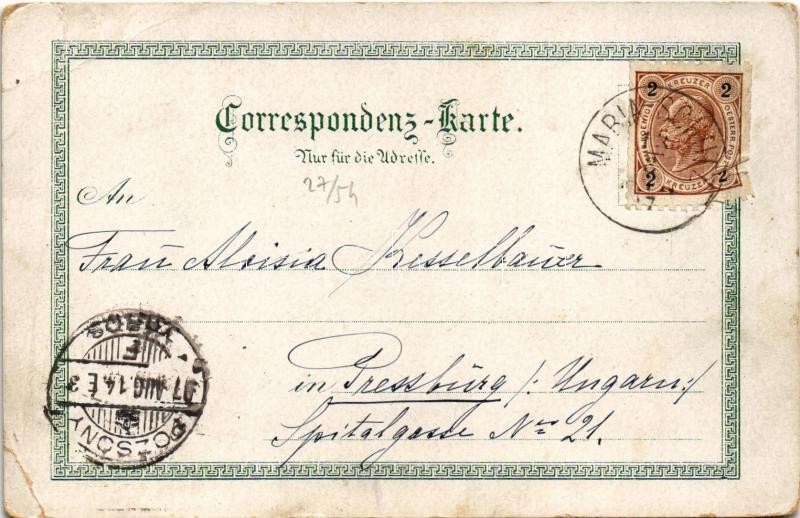 Correspondenz-Karte.
Nur für die Adresse.
27/54
An
Frau Aloisia Kesselbauer
in Pressburg /: Ungarn :/
Spitalgasse Nro 21.
2 KREUZER 2
2 KREUZER 2
MARIA
POZSONY
97 AUG. 14 E 3